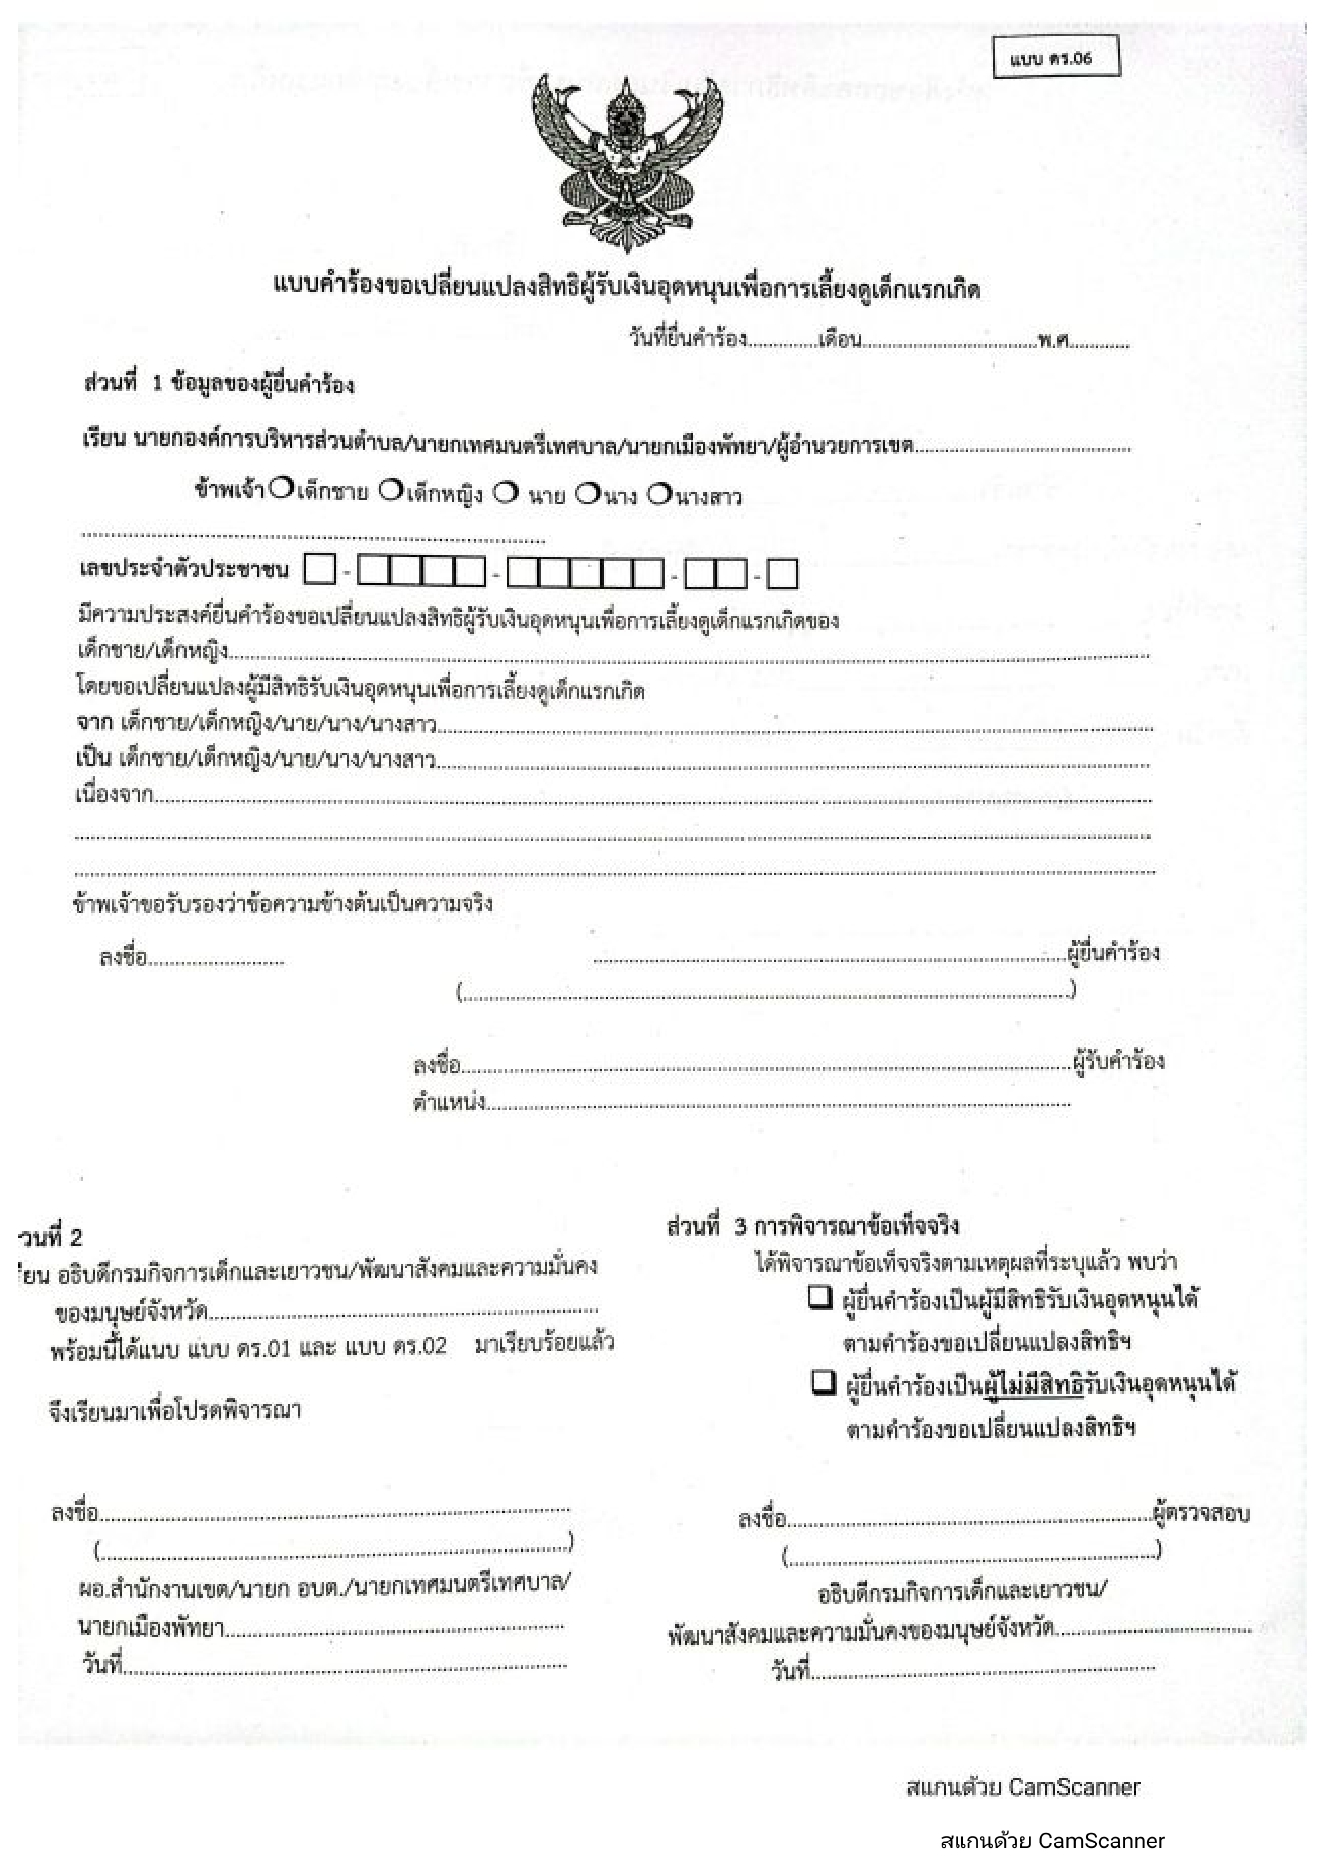 แบบ ดร.06
แบบคำร้องขอเปลี่ยนแปลงสิทธิผู้รับเงินอุดหนุนเพื่อการเลี้ยงดูเด็กแรกเกิด
วันที่ยื่นคำร้อง.............เดือน..................................พ.ศ............
ส่วนที่ 1 ข้อมูลของผู้ยื่นคำร้อง
เรียน นายกองค์การบริหารส่วนตำบล/นายกเทศมนตรีเทศบาล/นายกเมืองพัทยา/ผู้อำนวยการเขต..........................................
ข้าพเจ้า ❍เด็กชาย ❍เด็กหญิง ❍ นาย ❍นาง ❍นางสาว
..........................................................................................
เลขประจำตัวประชาชน □-□□□□-□□□□□-□□-□
มีความประสงค์ยื่นคำร้องขอเปลี่ยนแปลงสิทธิผู้รับเงินอุดหนุนเพื่อการเลี้ยงดูเด็กแรกเกิดของ
เด็กชาย/เด็กหญิง..........................................................................................
โดยขอเปลี่ยนแปลงผู้มีสิทธิรับเงินอุดหนุนเพื่อการเลี้ยงดูเด็กแรกเกิด
จาก เด็กชาย/เด็กหญิง/นาย/นาง/นางสาว..........................................................................................
เป็น เด็กชาย/เด็กหญิง/นาย/นาง/นางสาว..........................................................................................
เนื่องจาก..........................................................................................
..........................................................................................
..........................................................................................
ข้าพเจ้าขอรับรองว่าข้อความข้างต้นเป็นความจริง
ลงชื่อ.......................... ..........................................................................................ผู้ยื่นคำร้อง
(..........................................................................................)
ลงชื่อ..........................................................................................ผู้รับคำร้อง
ตำแหน่ง..........................................................................................
วนที่ 2
ยน อธิบดีกรมกิจการเด็กและเยาวชน/พัฒนาสังคมและความมั่นคง
ของมนุษย์จังหวัด..........................................................................
พร้อมนี้ได้แนบ แบบ ดร.01 และ แบบ ดร.02 มาเรียบร้อยแล้ว
จึงเรียนมาเพื่อโปรดพิจารณา
ลงชื่อ..........................................................................................
(..........................................................................................)
ผอ.สำนักงานเขต/นายก อบต./นายกเทศมนตรีเทศบาล/
นายกเมืองพัทยา..................................................................
วันที่..........................................................................................
ส่วนที่ 3 การพิจารณาข้อเท็จจริง
ได้พิจารณาข้อเท็จจริงตามเหตุผลที่ระบุแล้ว พบว่า
❏ ผู้ยื่นคำร้องเป็นผู้มีสิทธิรับเงินอุดหนุนได้
ตามคำร้องขอเปลี่ยนแปลงสิทธิฯ
❏ ผู้ยื่นคำร้องเป็นผู้ไม่มีสิทธิรับเงินอุดหนุนได้
ตามคำร้องขอเปลี่ยนแปลงสิทธิฯ
ลงชื่อ......................................................................ผู้ตรวจสอบ
(......................................................................)
อธิบดีกรมกิจการเด็กและเยาวชน/
พัฒนาสังคมและความมั่นคงของมนุษย์จังหวัด......................................
วันที่..................................................................
สแกนด้วย CamScanner
สแกนด้วย CamScanner